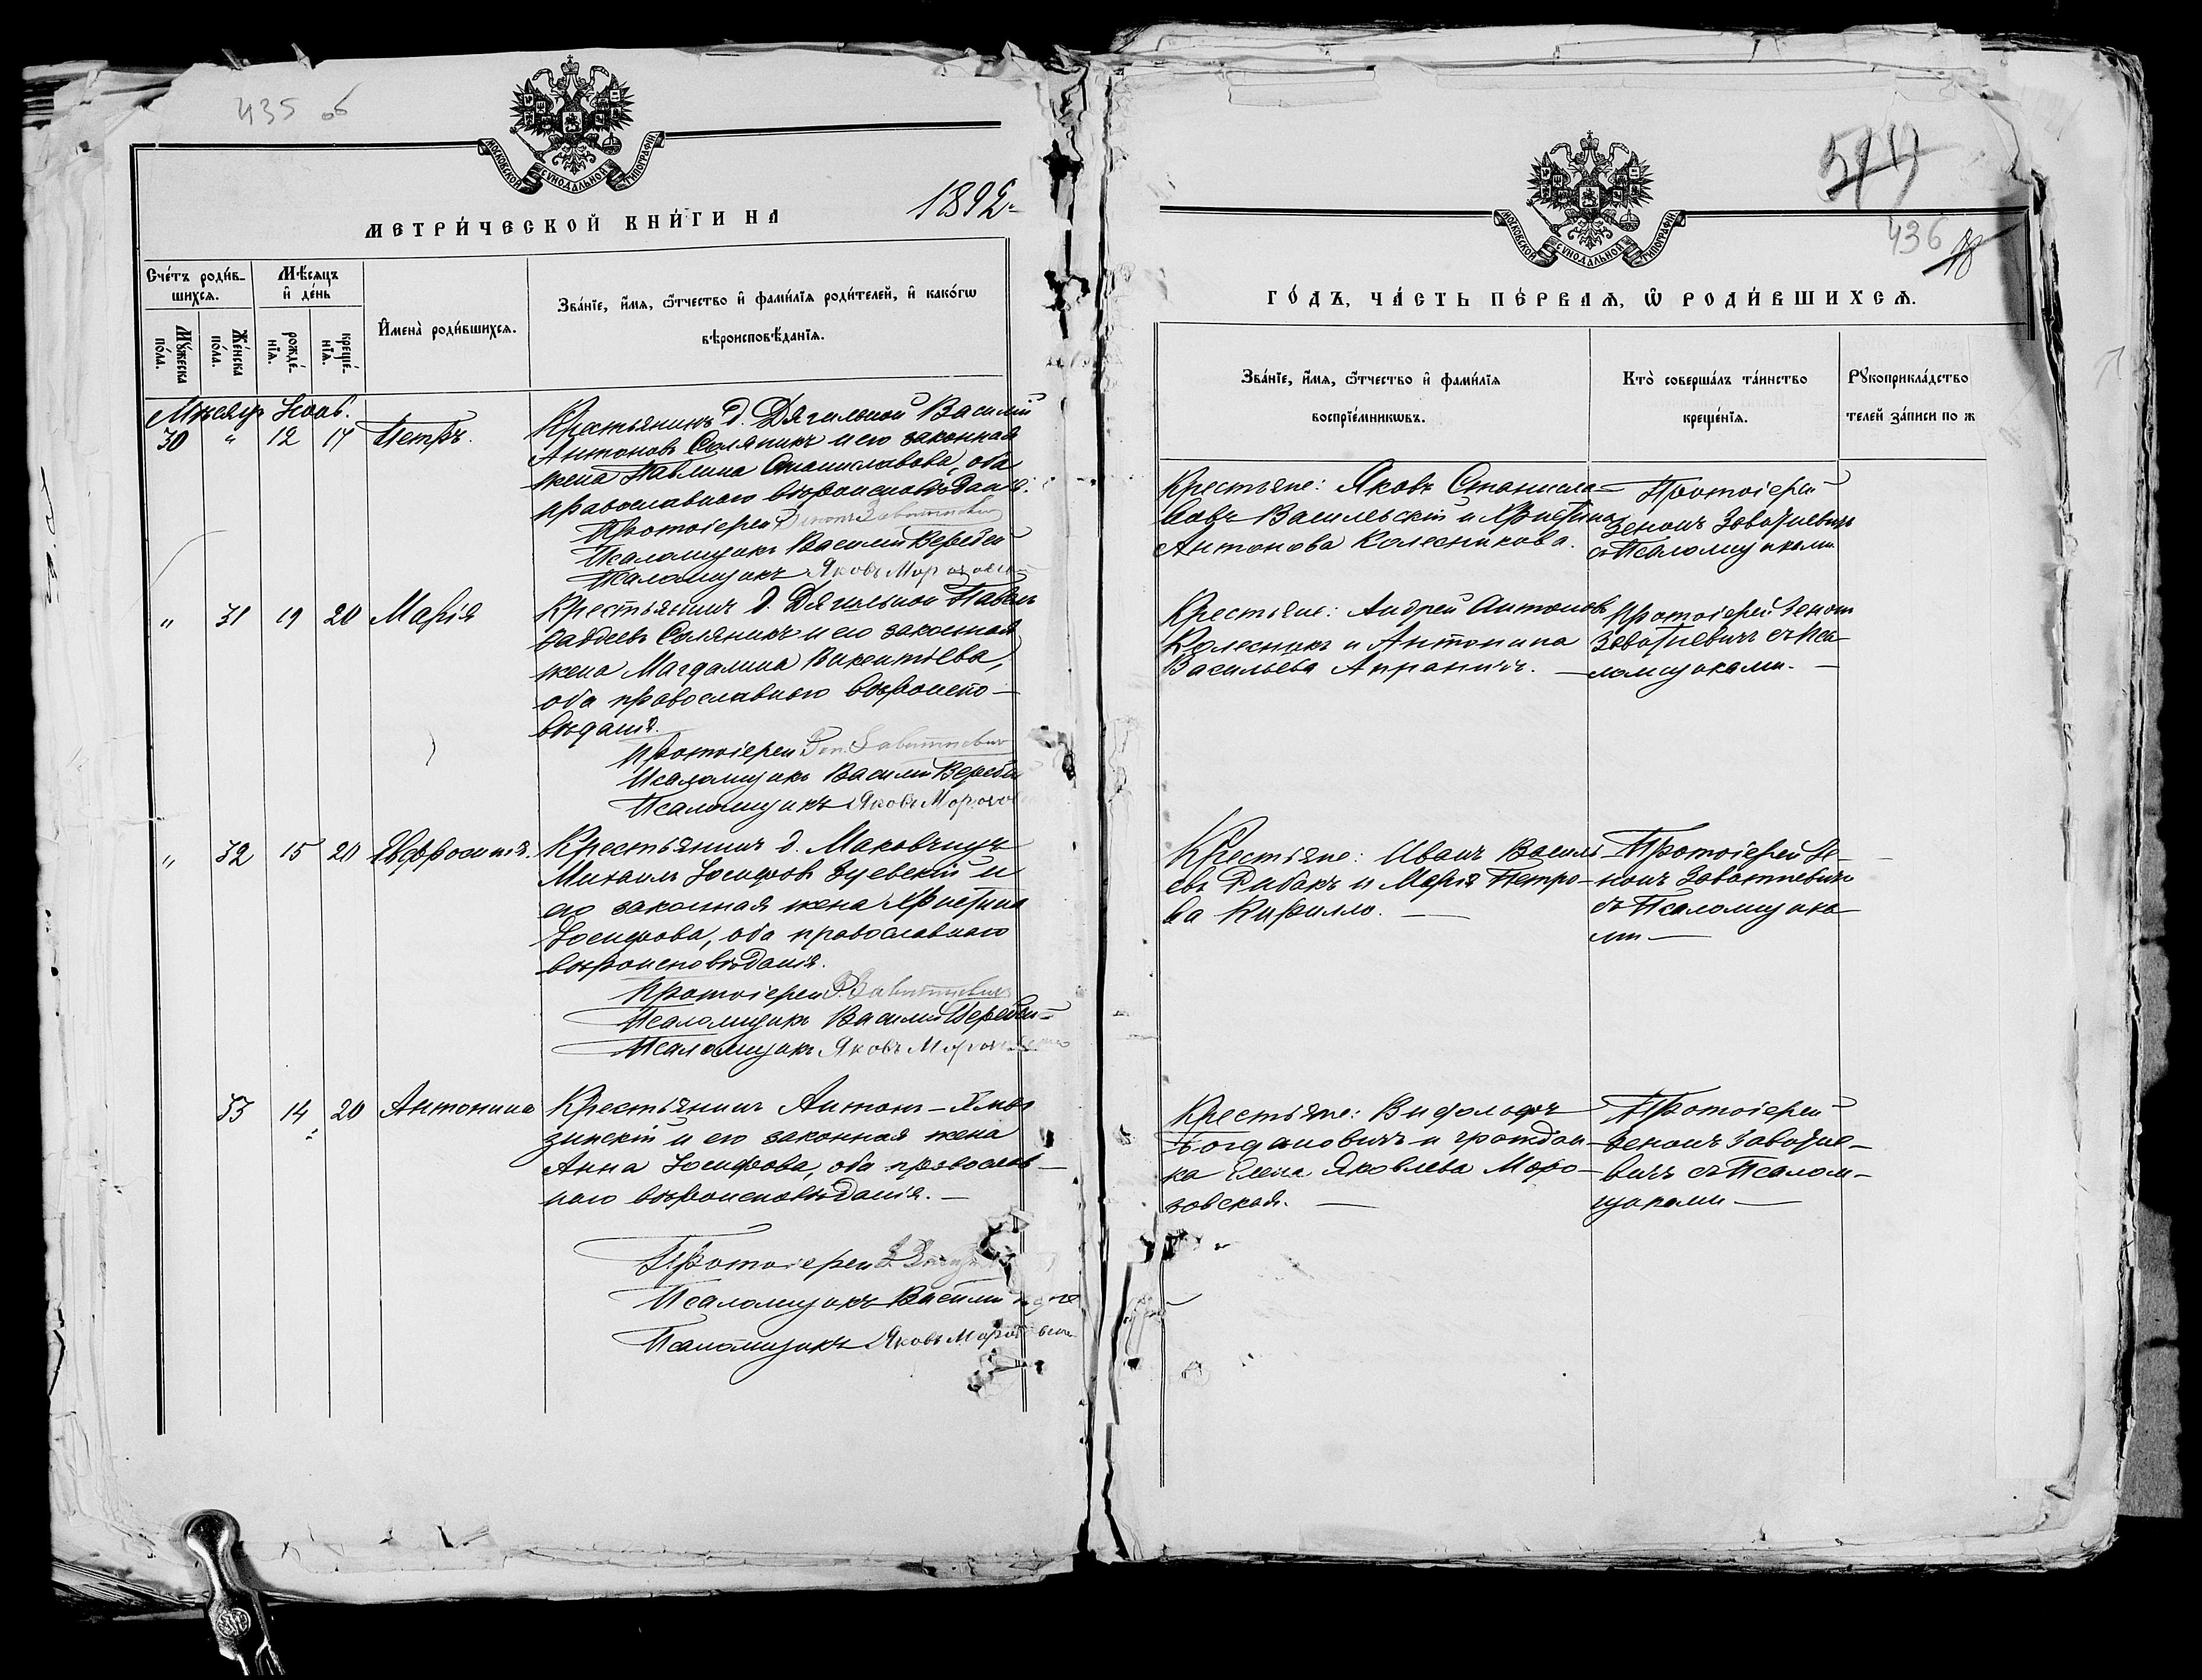 435 об
МОСКОВСКОЙ СѴНОДАЛЬНОЙ ТИПОГРАФІИ
МЕТРИ́ЧЕСКОЙ КНИ́ГИ НА 1892
Сче́тъ роди́в-
шихсѧ.
Мѣ́сяцъ
и҆ де́нь
Мꙋ́жеска
по́ла.
Же́нска
по́ла.
рожде́-
нїѧ.
креще́-
нїѧ.
И҆мена̀ роди́вшихсѧ.
Зва́нїе, и҆́мѧ, ѻ҆́тчество и҆ фами́лїѧ роди́телей, и҆ како́гѡ
вѣроисповѣ́данїѧ.
Мѣсяцъ Нояб.
30 " 12 17 Петръ.
Крестьянинъ д. Дягильной Василій
Антоновъ Соляникъ и его законная
жена Павлина Станиславова, оба
православнаго вѣроисповѣданія.
Протоіерей Зенонъ Завитневичъ
Псаломщикъ Василій Веребей
Псаломщикъ Яковъ
" 31 19 20 Марія
Крестьянинъ д. Дягильной Павелъ
Фаддеевъ Соляникъ и его законная
жена Магдалина Викентьева,
оба православнаго вѣроиспо-
вѣданія.
Протоіерей Зен. Завитневичъ
Псаломщикъ Василій Веребей
Псаломщикъ Яковъ
" 32 15 20 Евфросинія.
Крестьянинъ д. Маковчицъ
Михаилъ Іосифовъ и
его законная жена Христина
Іосифова, оба православнаго
вѣроисповѣданія.
Протоіерей З. Завитневичъ
Псаломщикъ Василій Веребей
Псаломщикъ Яковъ
33 14 20 Антонина
Крестьянинъ Антонъ
и его законная жена
Анна Іосифова, оба православ-
наго вѣроисповѣданія.
Протоіерей З.
Псаломщикъ Василій
Псаломщикъ Яковъ
436
МОСКОВСКОЙ СѴНОДАЛЬНОЙ ТИПОГРАФІИ
ГО́ДЪ, ЧА́СТЬ ПЕ́РВАѦ, Ѽ РОДИ́ВШИХСѦ.
Зва́нїе, и҆́мѧ, ѻ҆́тчество и҆ фами́лїѧ
воспрїе́мникѡвъ.
Кто̀ соверша́лъ та́инство
креще́нїѧ.
Рꙋкоприкла́дство
телей за́писи по ж
Крестьяне: Яковъ Станисла-
вовъ Васильевскій и Христина
Антонова Колесникова.
Протоіерей
Зенонъ Завитневичъ
съ Псаломщиками
Крестьяне: Андрей Антоновъ
Колесникъ и Антонина
Васильева Апраничъ.
Протоіерей Зенонъ
Завитневичъ съ Пса-
ломщиками.
Крестьяне: Иванъ Василь-
евъ Рибакъ и Марія Петро-
ва Кирилло.
Протоіерей Зе-
нонъ Завитневичъ
съ Псаломщика-
ми
Крестьяне:
Богдановичъ и граждан-
ка Елена Яковлева Моро-
зовская.
Протоіерей
Зенонъ Завитне-
вичъ съ Псалом-
щиками